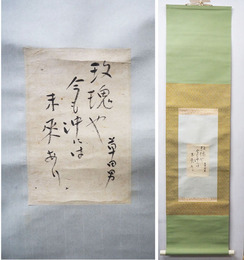 玫瑰や
今も沖には
未來あり
草田男